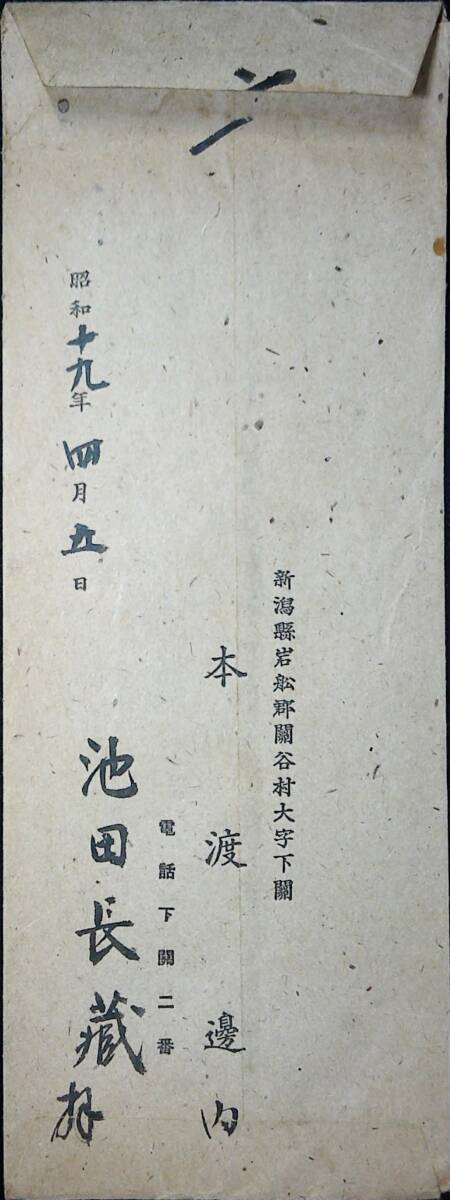 新潟縣岩舩郡關谷村大字下關
本渡邊内
電話下關二番
昭和十九年四月五日
池田長藏拝